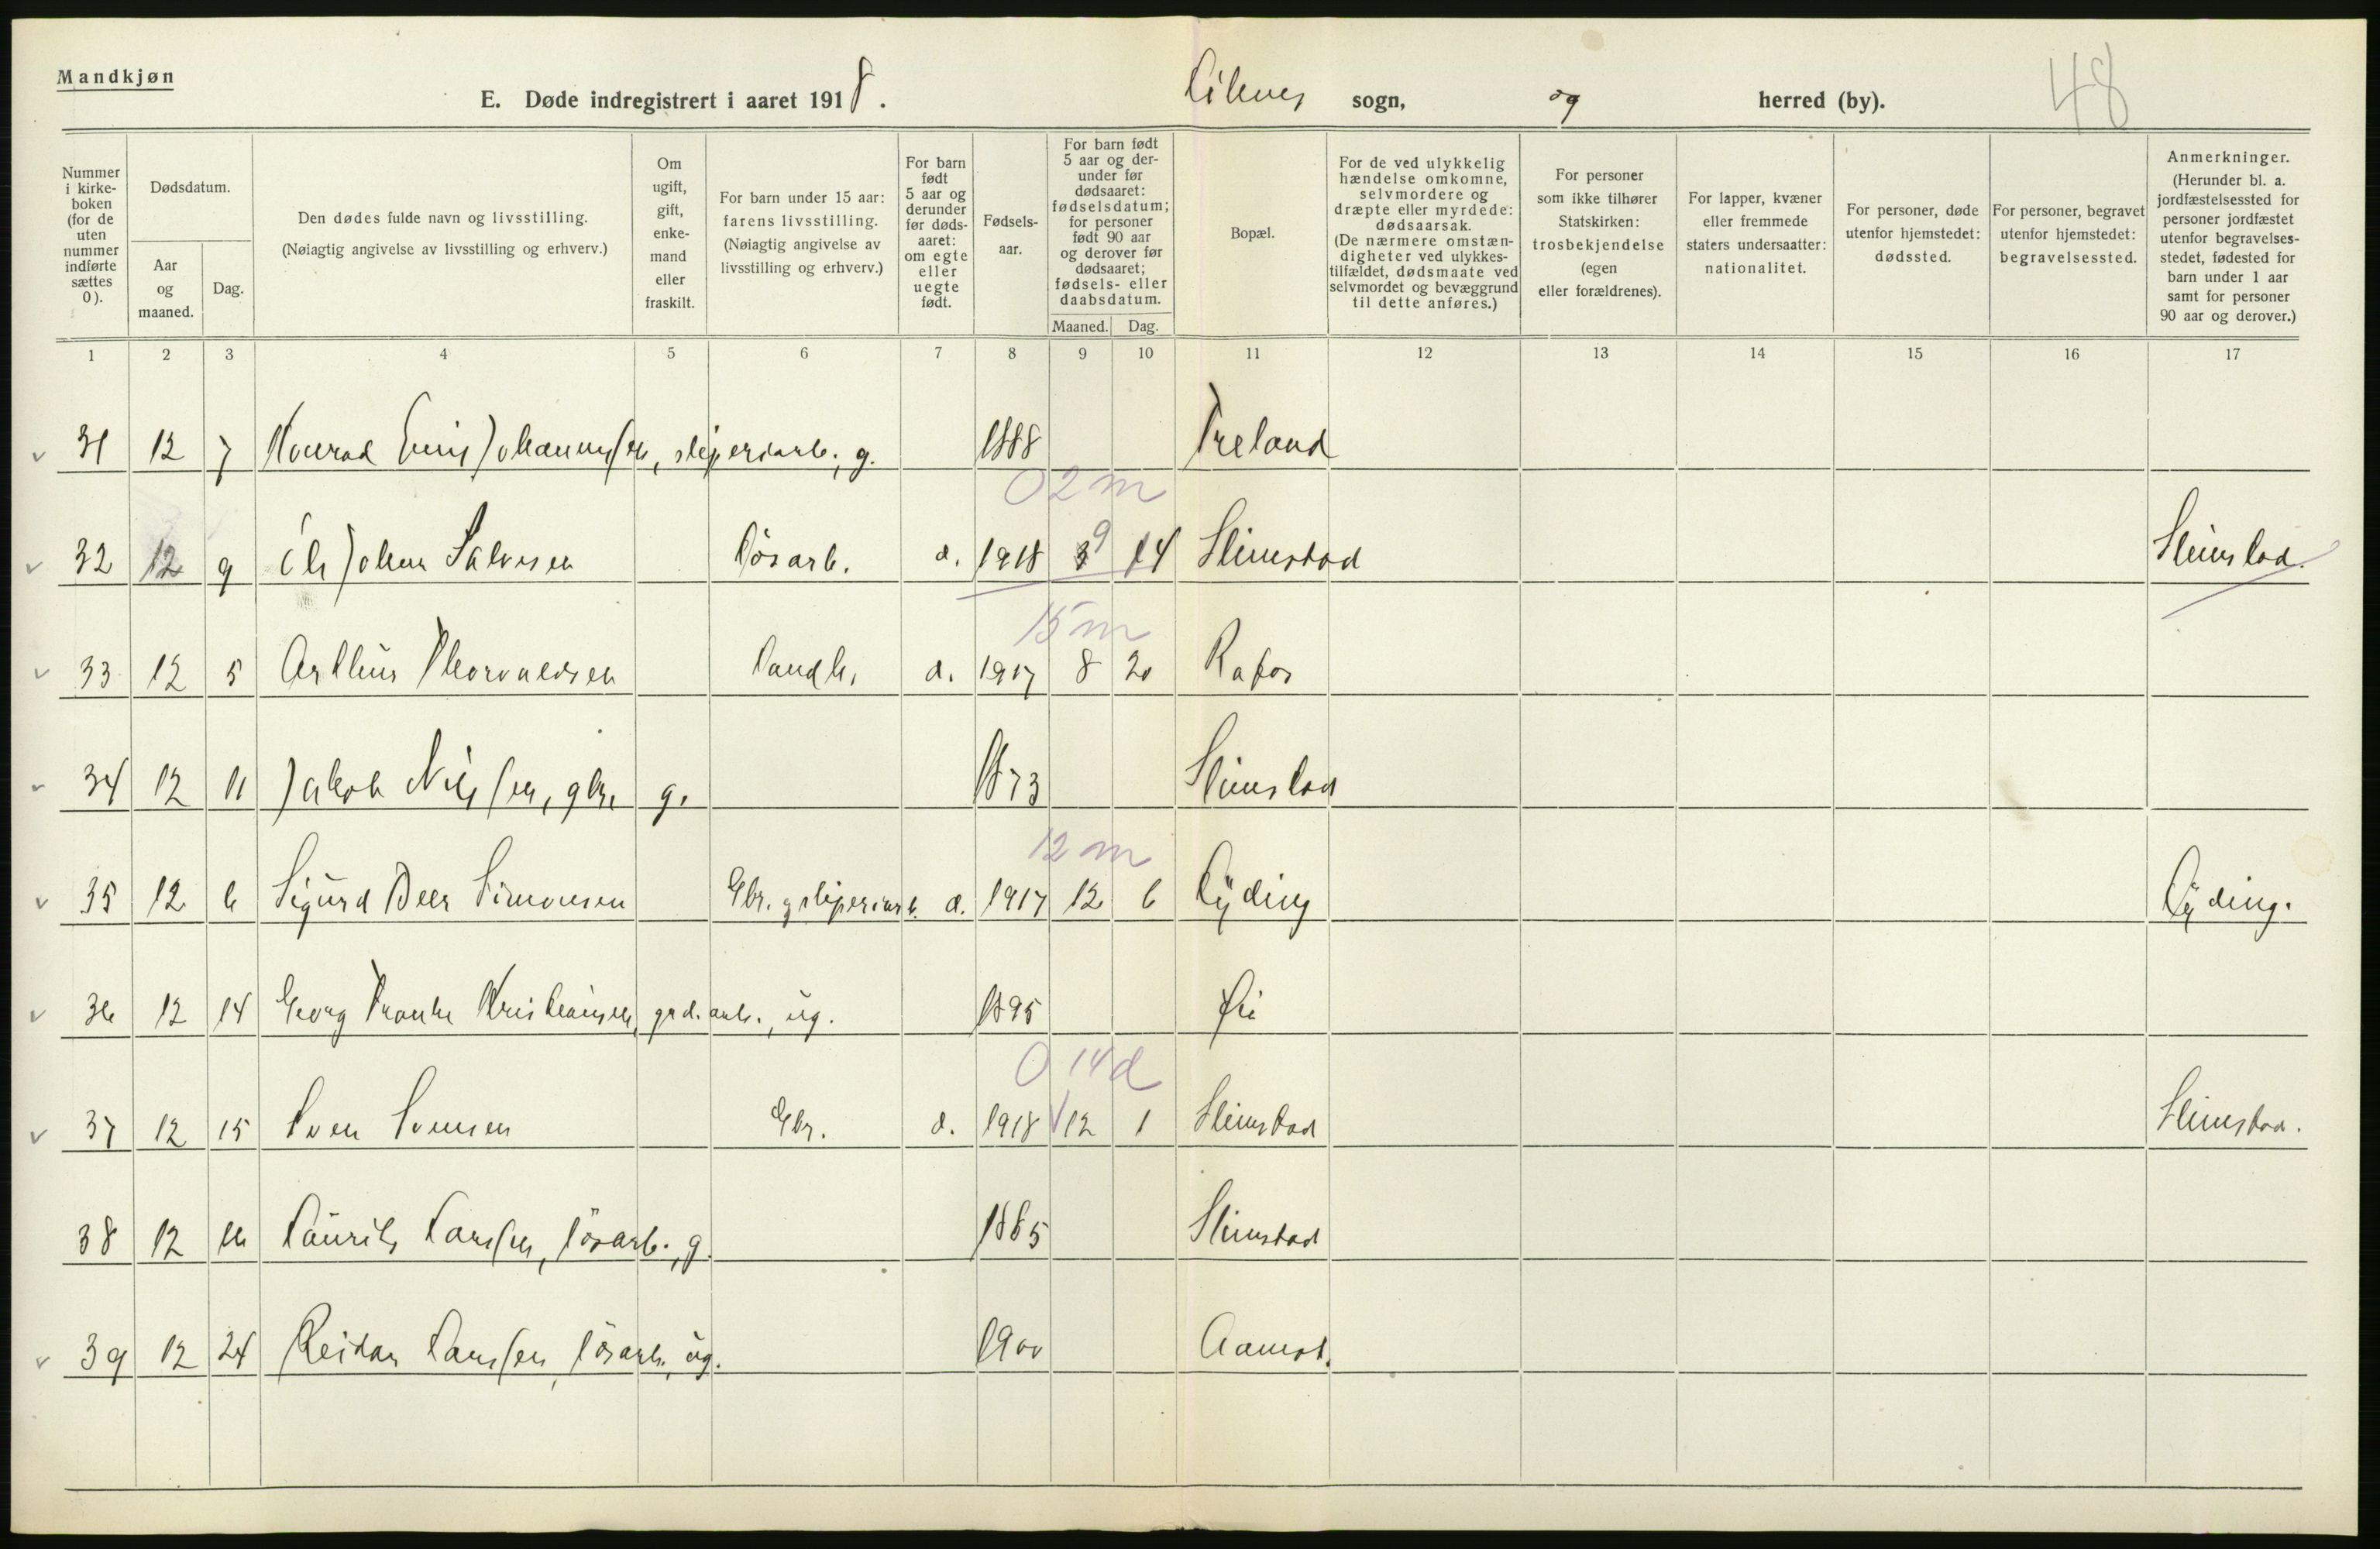 Mandkjøn
E. Døde indregistrert i aaret 1918. sogn, og herred (by). 48
Nummer i kirke- boken (for de uten nummer indførte sættes 0).
Dødsdatum.
Aar og maaned.
Dag.
Den dødes fulde navn og livsstilling.
(Nøiagtig angivelse av livsstilling og erhverv.)
Om ugift, gift, enke- mand eller fraskilt.
For barn under 15 aar: farens livsstilling. (Nøiagtig angivelse av livsstilling og erhverv.)
For barn født 5 aar og derunder før døds- aaret: om egte eller uegte født.
Fødsels- aar.
For barn født 5 aar og der- under før dødsaaret: fødselsdatum; for personer født 90 aar og derover før dødsaaret; fødsels- eller daabsdatum.
Maaned. Dag.
Bopæl.
For de ved ulykkelig hændelse omkomne, selvmordere og dræpte eller myrdede: dødsaarsak. (De nærmere omstæn- digheter ved ulykkes- tilfældet, dødsmaate ved selvmordet og bevæggrund til dette anføres.)
For personer som ikke tilhører Statskirken: trosbekjendelse (egen eller forældrenes).
For lapper, kvæner eller fremmede staters undersaatter: nationalitet.
For personer, døde utenfor hjemstedet: dødssted.
For personer, begravet utenfor hjemstedet: begravelsessted.
Anmerkninger. (Herunder bl. a. jordfæstelsessted for personer jordfæstet utenfor begravelses- stedet, fødested for barn under 1 aar samt for personer 90 aar og derover.)
1 2 3 4 5 6 7 8 9 10 11 12 13 14 15 16 17
31 12 7 Konrad Emil Johannessen, sliperiarb., g. 1888
0 2 m
32 12 9 Ole Johan Salvesen Løsarb. 1918 9 14 Slimestad Slimestad.
15 m
33 12 5 Arthur Thorvaldsen 1917 8 20 Rafos
34 12 11 Jakob Nilssen, gbr. g. 1873 Slimestad
12 m
35 12 6 Sigurd Simonsen Gbr. g sliperiarb. 1917 12 6 Øyding Øyding.
36 12 14 Georg Kristiansen, grd.arb., ug. 1895
0 14 d
37 12 15 Sven Svensen Gbr. 1918 12 1 Slimestad Slimestad.
38 12 16 Laurits Larssen, løsarb., g. 1885 Slimestad
39 12 24 Reidar Larssen, løsarb., ug. 1900 Aamot.